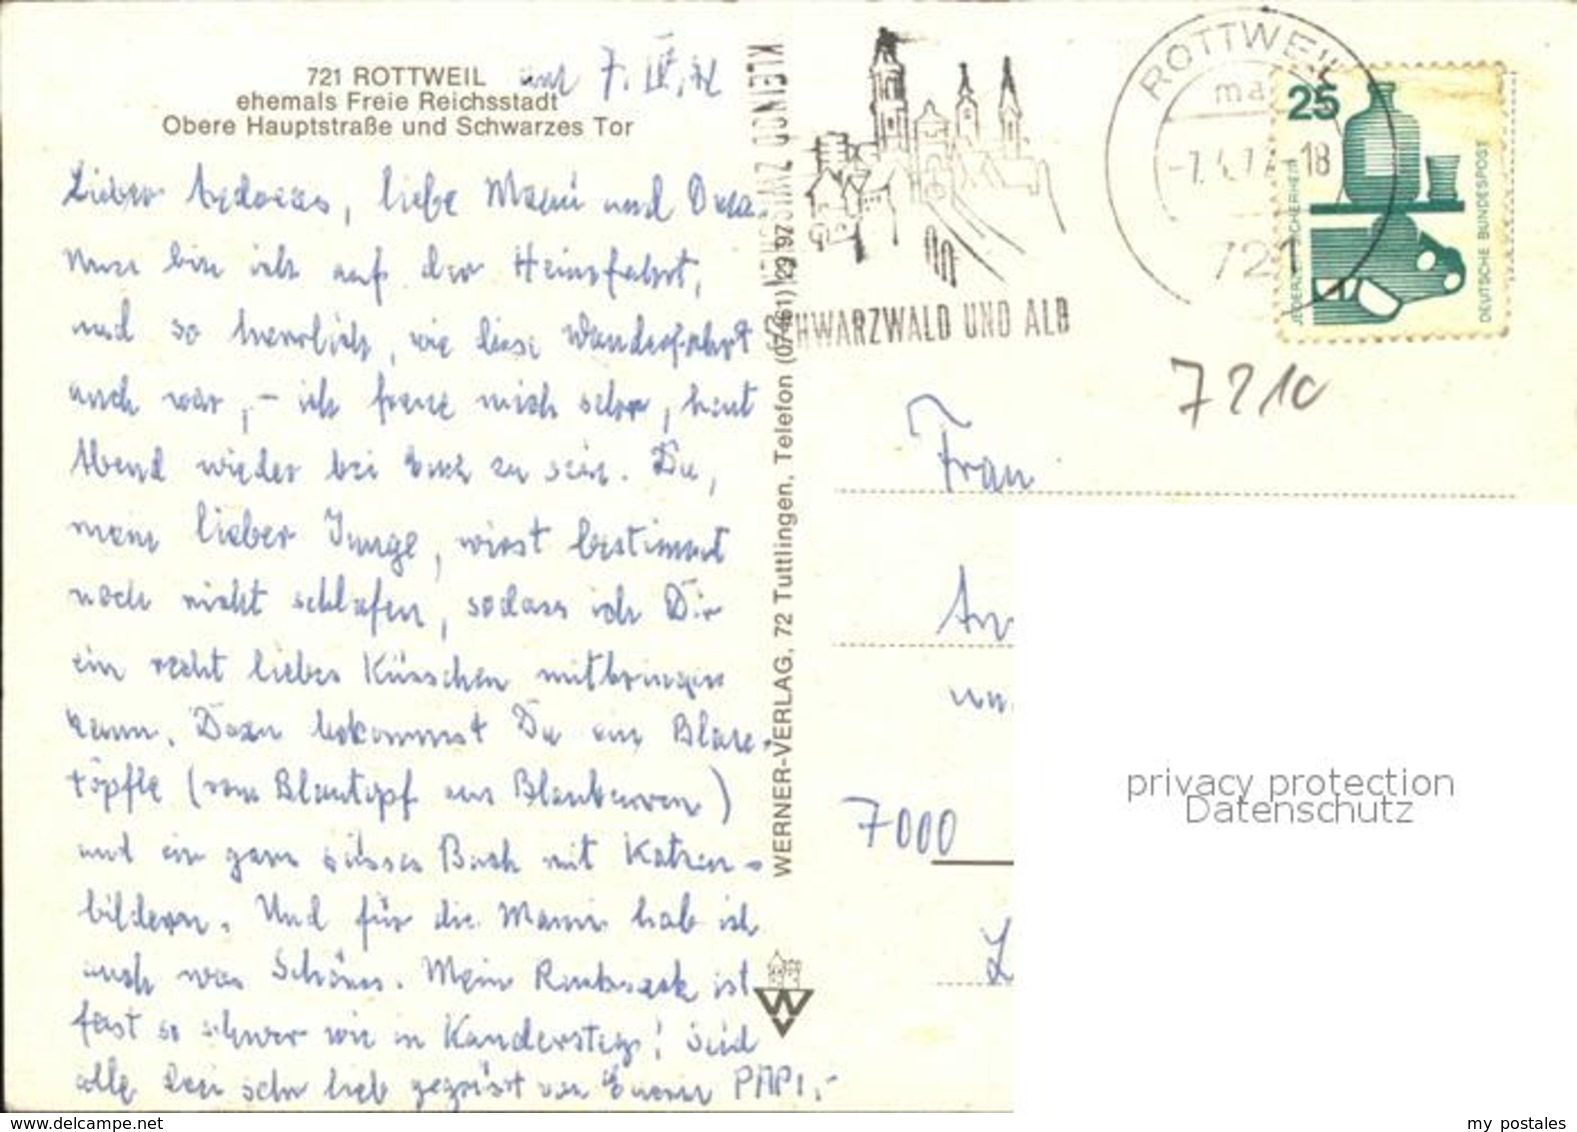 721 ROTTWEIL
ehemals Freie Reichsstadt
Obere Hauptstraße und Schwarzes Tor
am 7. IV.
Lieber Andreas, liebe Mami und Oma.
Nun bin ich auf der Heimfahrt,
und so herrlich, wie diese Wanderfahrt
auch war, – ich freue mich sehr, heut
Abend wieder bei Euch zu sein. Du,
mein lieber Junge, wirst bestimmt
noch nicht schlafen, sodass ich Dir
ein recht liebes Küsschen mitbringen
kann. Dazu bekommst Du ein Blau-
töpfle (vom Blautopf aus Blaubeuren)
und ein ganz süsses Buch mit Katzen-
bildern. Und für die Mami hab ich
auch was Schönes. Mein Rucksack ist
fast so schwer wie in Kandersteg! Seid
alle drei sehr lieb gegrüsst von Eurem PAPI.-
WERNER-VERLAG, 72 Tuttlingen, Telefon (07461) 2997
KLEINOD ZWISCHEN
SCHWARZWALD UND ALB
ROTTWEIL
ma
-18
721
25
JEDERZEIT SICHERHEIT
DEUTSCHE BUNDESPOST
7210
Frau
An
un
7000
L
W
privacy protection
Datenschutz
www.delcampe.net
my postales